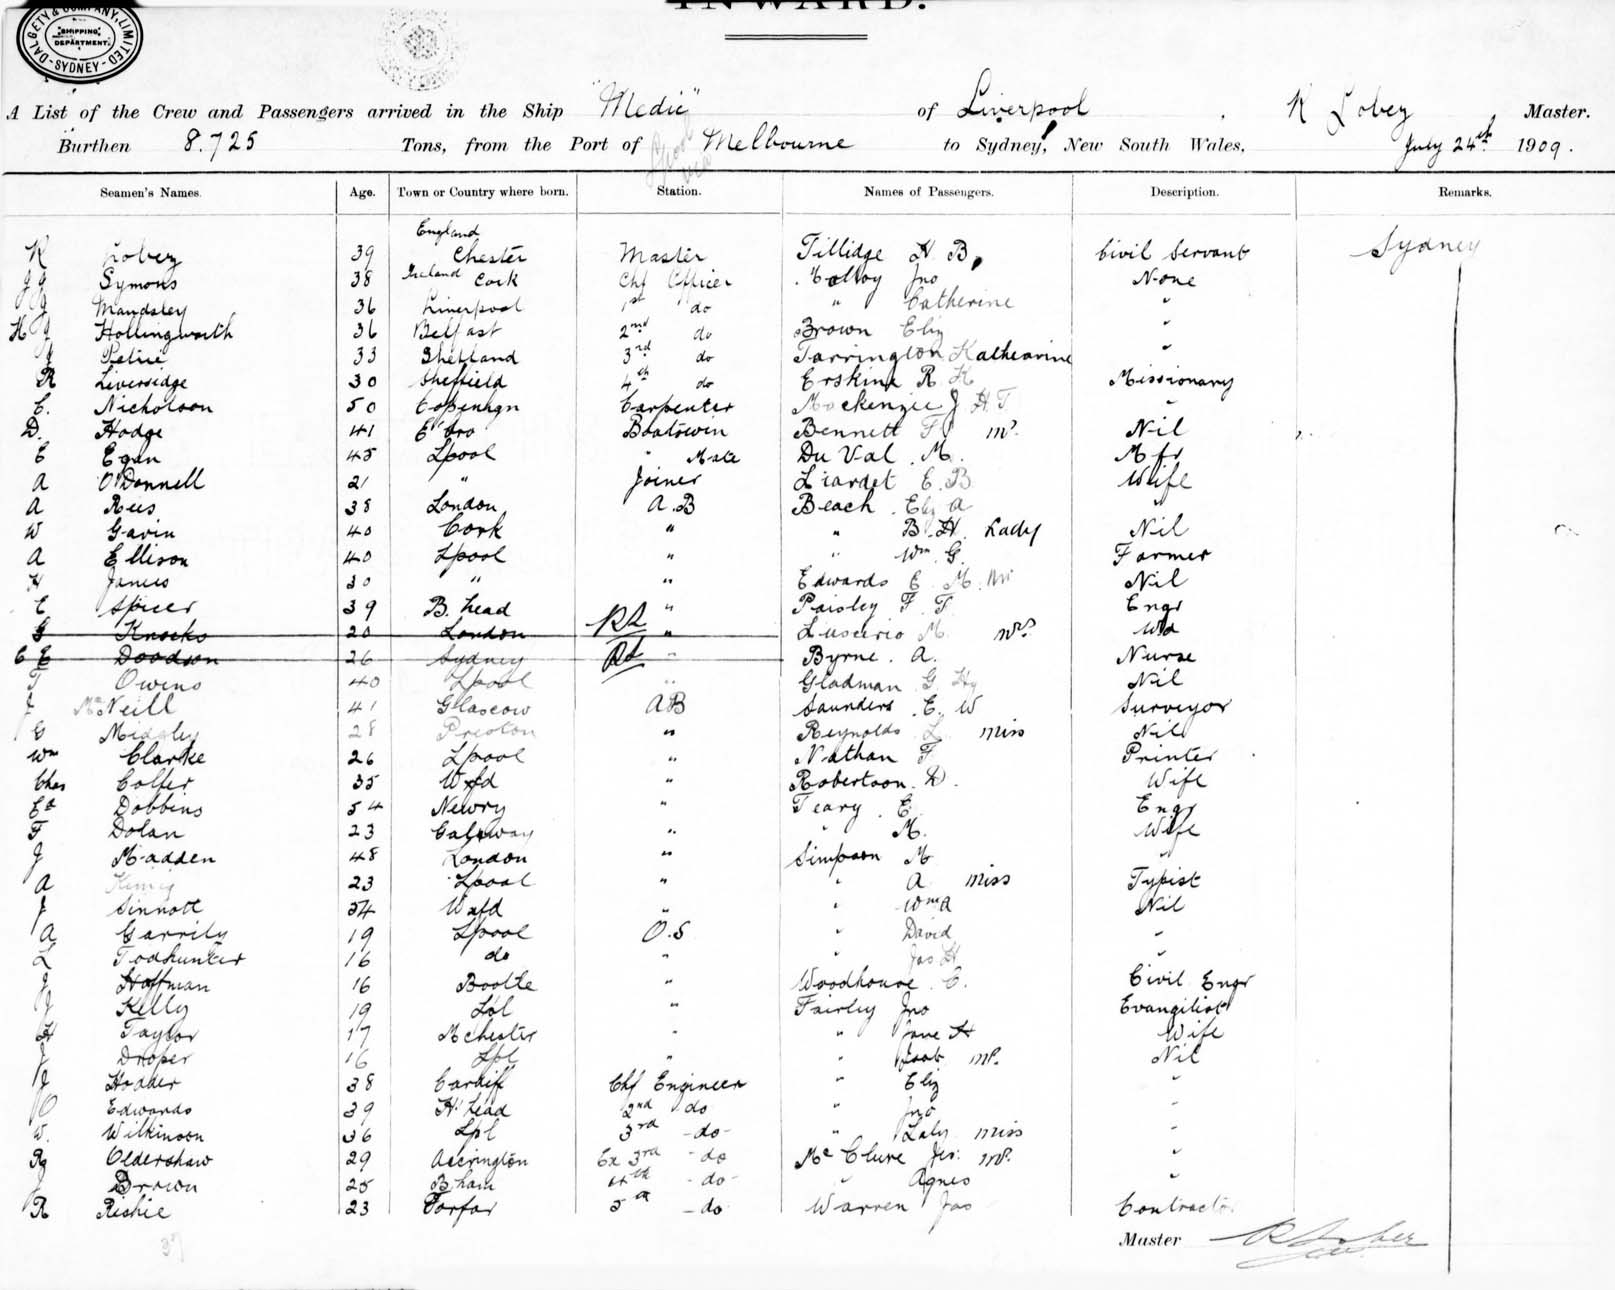 INWARD.
DALGETY & COMPANY, LIMITED
SHIPPING DEPARTMENT.
-SYDNEY-
A List of the Crew and Passengers arrived in the Ship "Medic" of Liverpool, R Lobez Master.
Burthen 8.725 Tons, from the Port of Melbourne to Sydney, New South Wales, July 24th 1909.
Seamen's Names. Age. Town or Country where born. Station. Names of Passengers. Description. Remarks.
England
R Lobez 39 Chester Master Tillidge H B, Civil Servant Sydney
J J Symons 38 Ireland Cork Chf Officer Molloy Jno None
J Mandsley 36 Liverpool 1st do " Catherine "
H J Hollingworth 36 Belfast 2nd do Brown Eliz "
J Petrie 33 Shetland 3rd do Tarrington Kathearine "
R Liversidge 30 Sheffield 4th do Erskine R. K Missionary
C. Nicholson 50 Copenhgn Carpenter Mackenzie J H. T "
D. Hodge 41 Boatswin Bennett F mr. Nil
E Egan 45 Lpool " Mate Du Val. M. Mfr
A O'Donnell 21 " Joiner Liardet E. B Wife
A Rees 38 London A.B Beach. Eliz A "
W Gavin 40 Cork " " B. H. Lady Nil
A Ellison 40 Lpool " " Wm G. Farmer
H James 30 " " Edwards E. M. Nil
E Spicer 39 B. head " Paisley F. T. Engr
G Knocks 20 London " M. mrs
C E Doodson 26 Sydney " Byrne. A. Nurse
T Owens 40 Lpool " Gladman G. Hy Nil
J McNeill 41 Glascow AB Saunders. E. W Surveyor
G Midgley 28 Preston " Reynolds L. miss Nil
Wm Clarke 26 Lpool " Nathan F Printer
Chas Colfer 35 Wxfd " Robertson. D. Wife
Ed Dobbins 54 Newry " Teary. E. Engr
F Dolan 23 Galeway " " M. Wife
J Madden 48 London " Simpson M "
A 23 Lpool " " A miss Typist
J Sinnott 34 Wxfd " " Wm A Nil
A Garrity 19 Lpool O.S " David "
L Todhunter 16 do " " Jas H "
J Hoffman 16 Bootle " Woodhouse. C. Civil Engr
J Kelly 19 Lpl " Fairley Jno Evangilist
H Taylor 17 Mchester " " Jane H Wife
J Draper 16 Lpl " " mr. Nil
J Hodder 38 Cardiff Chf Engineer " Eliz "
O Edwards 39 H'head 2nd do " Jno "
W. Wilkinson 36 Lpl 3rd -do- " Laly miss "
R Oldershaw 29 Accrington Ex 3rd -do McClure mr. "
J Brown 25 B.ham 4th -do- " Agnes "
R Richie 23 Forfar 5th -do Warren Jas Contractor
37
Master